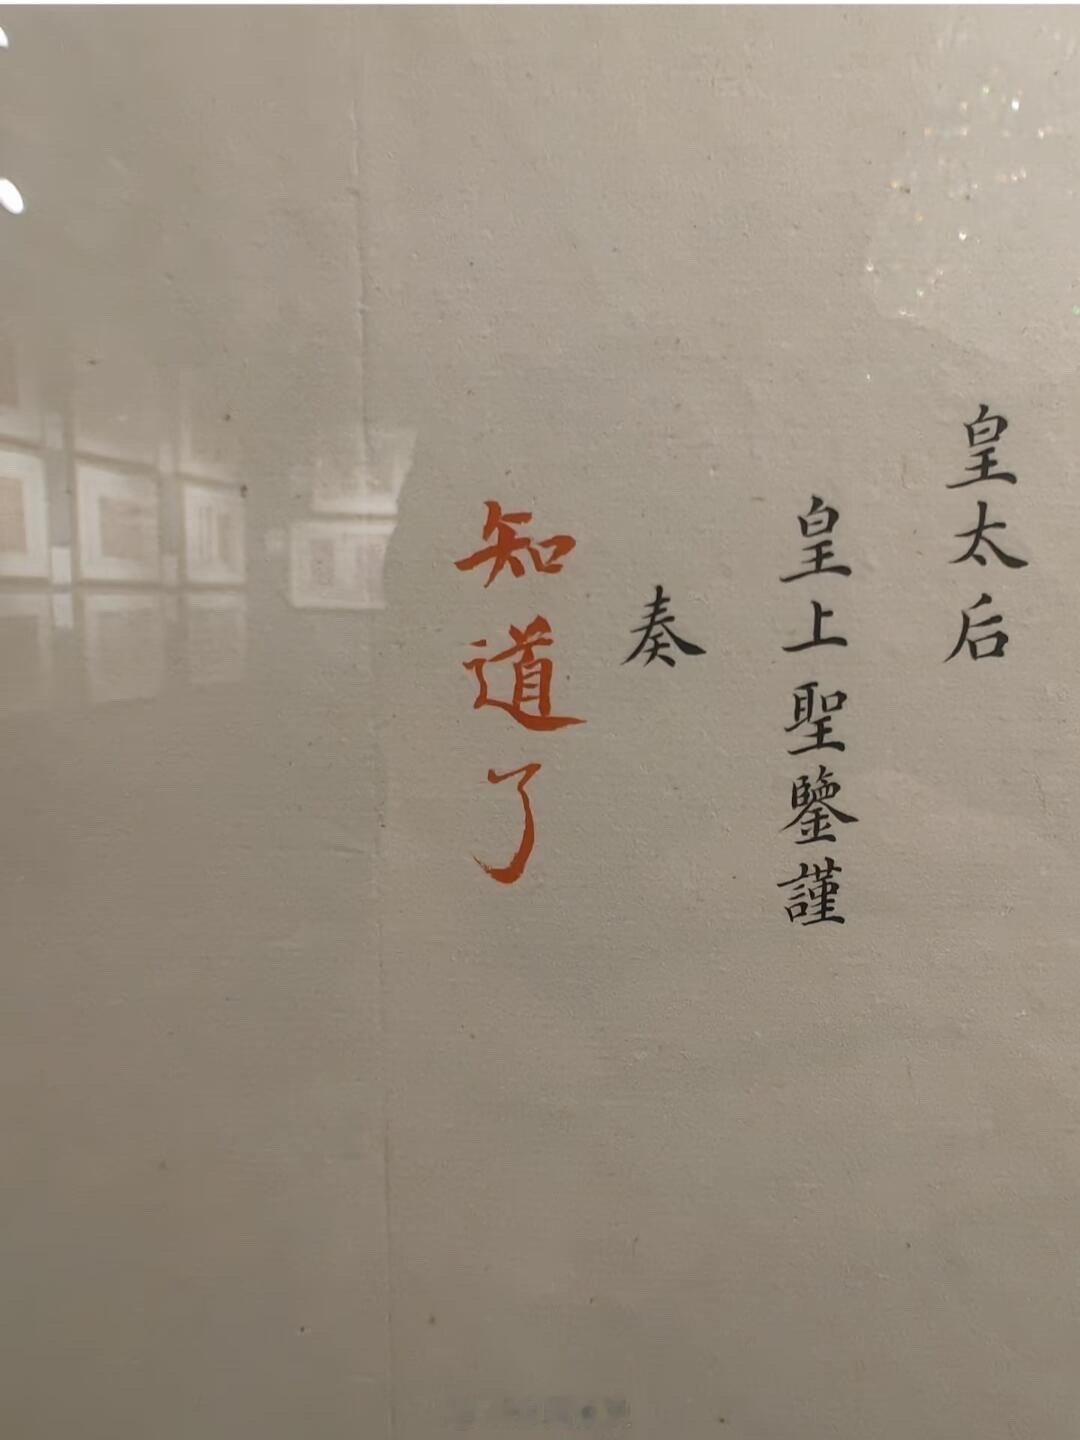 皇太后
皇上聖鑒謹
奏
知道了